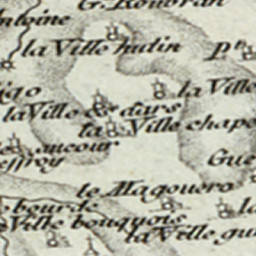 G. Rouvran
ntoine
la Ville hudin
la Ville
la Ville es dars
la Ville chape
aucour
effroy
Gue
le Magouero
Ville bouquois
la Ville gui